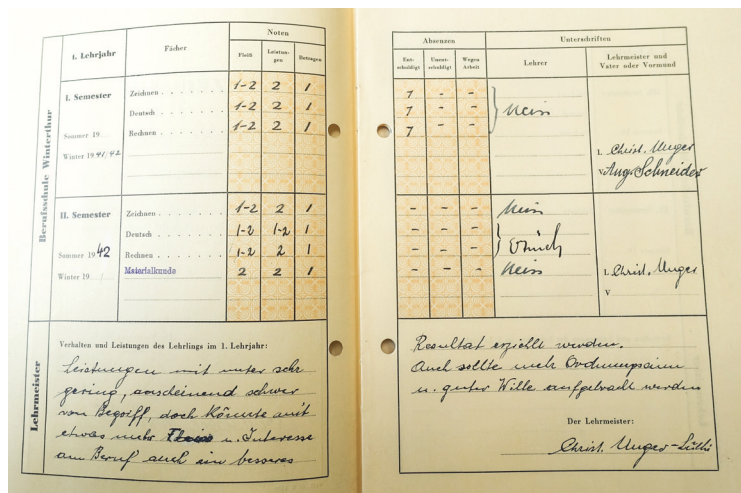 Berufsschule Winterthur
1. Lehrjahr
Fächer
Noten
Fleiß
Leistun-
gen
Betragen
I. Semester
Zeichnen 1-2 2 1
Deutsch 1-2 2 1
Sommer 19
Rechnen 1-2 2 1
Winter 1941/42
II. Semester
Zeichnen 1-2 2 1
Deutsch 1-2 1-2 1
Sommer 1942
Rechnen 1-2 2 1
Winter 19
Materialkunde 2 2 1
Lehrmeister
Verhalten und Leistungen des Lehrlings im 1. Lehrjahr:
Leistungen mit unter sehr
gering, anscheinend schwer
von Begriff, doch könnte mit
etwas mehr Fleiss u. Interesse
am Beruf auch ein besseres
Absenzen
Unterschriften
Ent-
schuldigt
Unent-
schuldigt
Wegen
Arbeit
Lehrer
Lehrmeister und
Vater oder Vormund
7 - -
7 - -
7 - -
L Christ. Unger
V Aug. Schneider
- - -
- - -
- - -
- - -
L Christ. Unger
V
Resultat erziehlt werden.
Auch sollte mehr Ordnungssinn
u. guter Wille aufgebracht werden
Der Lehrmeister:
Christ. Unger-Lüthi